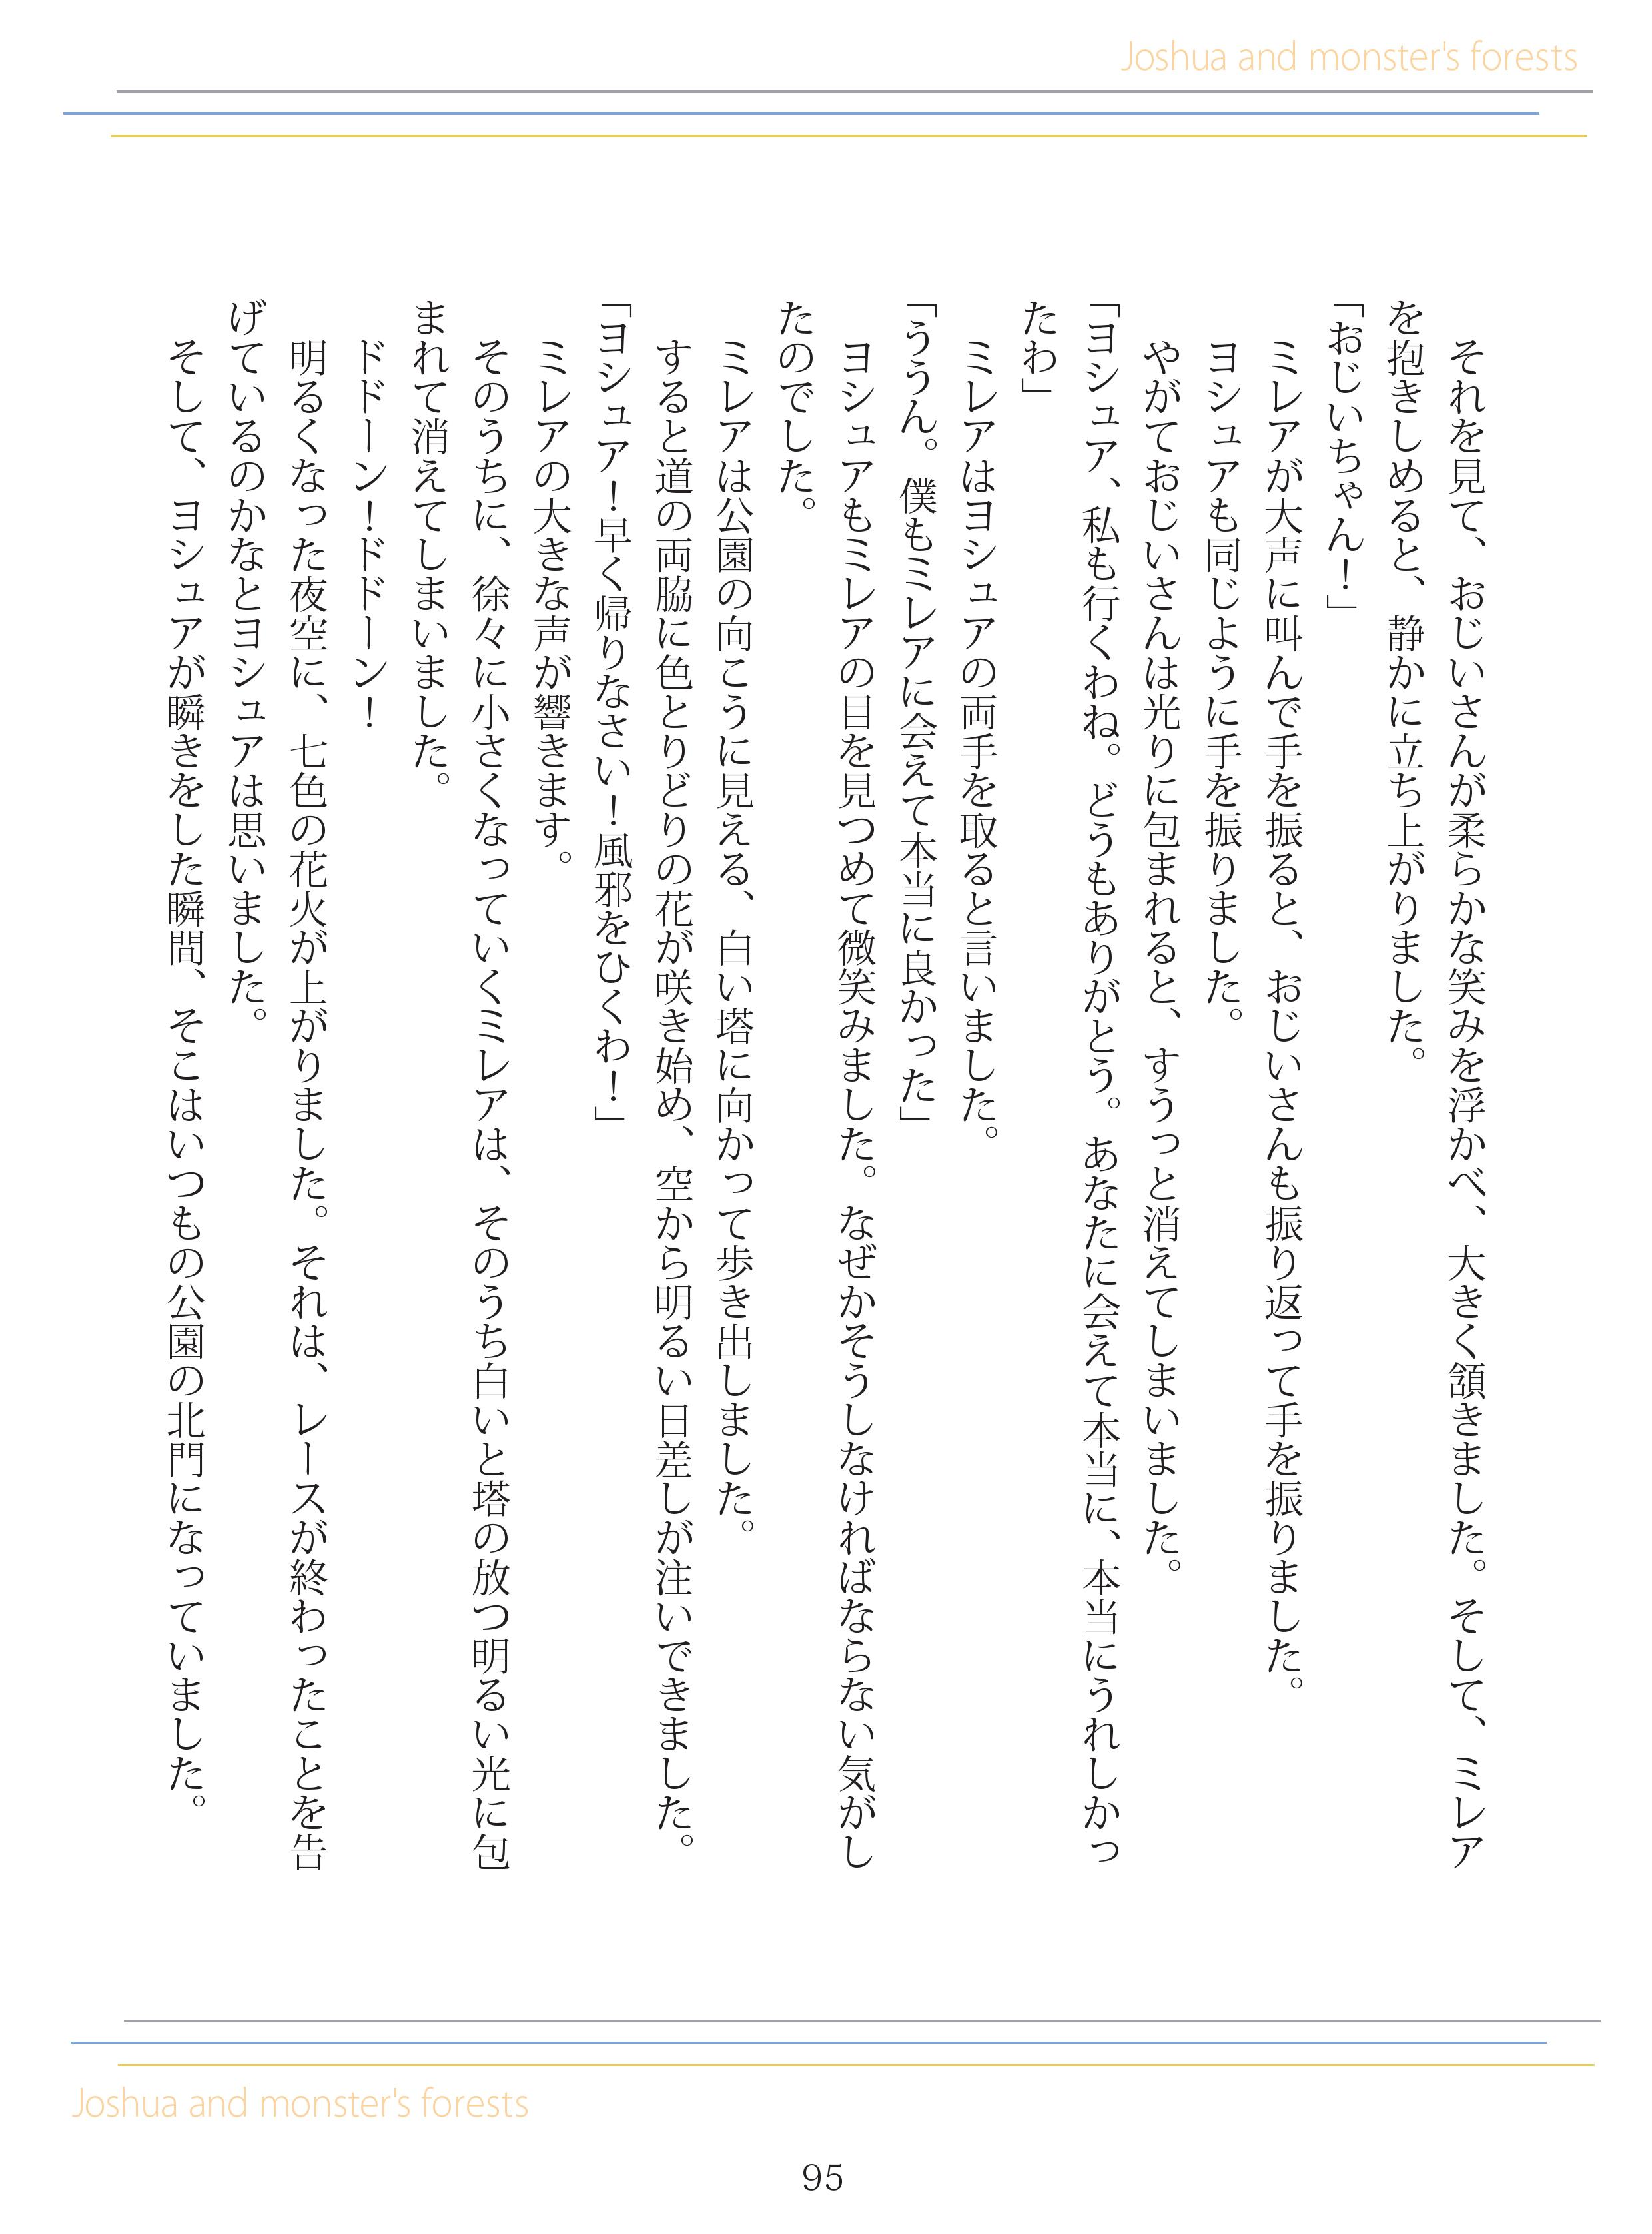 Joshua and monster's forests
それを見て、おじいさんが柔らかな笑みを浮かべ、大きく頷きました。そして、ミレア
を抱きしめると、静かに立ち上がりました。
「おじいちゃん！」
ミレアが大声に叫んで手を振ると、おじいさんも振り返って手を振りました。
ヨシュアも同じように手を振りました。
やがておじいさんは光りに包まれると、すうっと消えてしまいました。
「ヨシュア、私も行くわね。どうもありがとう。あなたに会えて本当に、本当にうれしかっ
たわ」
ミレアはヨシュアの両手を取ると言いました。
「ううん。僕もミレアに会えて本当に良かった」
ヨシュアもミレアの目を見つめて微笑みました。なぜかそうしなければならない気がし
たのでした。
ミレアは公園の向こうに見える、白い塔に向かって歩き出しました。
すると道の両脇に色とりどりの花が咲き始め、空から明るい日差しが注いできました。
「ヨシュア！早く帰りなさい！風邪をひくわ！」
ミレアの大きな声が響きます。
そのうちに、徐々に小さくなっていくミレアは、そのうち白いと塔の放つ明るい光に包
まれて消えてしまいました。
ドドーン！ドドーン！
明るくなった夜空に、七色の花火が上がりました。それは、レースが終わったことを告
げているのかなとヨシュアは思いました。
そして、ヨシュアが瞬きをした瞬間、そこはいつもの公園の北門になっていました。
Joshua and monster's forests
95